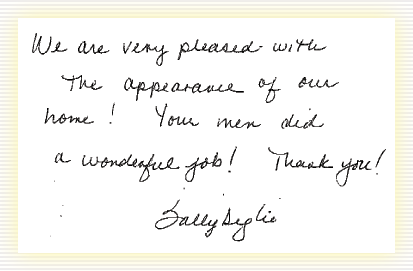 We are very pleased with
the appearance of our
home! Your men did
a wonderful job! Thank you!
Sally